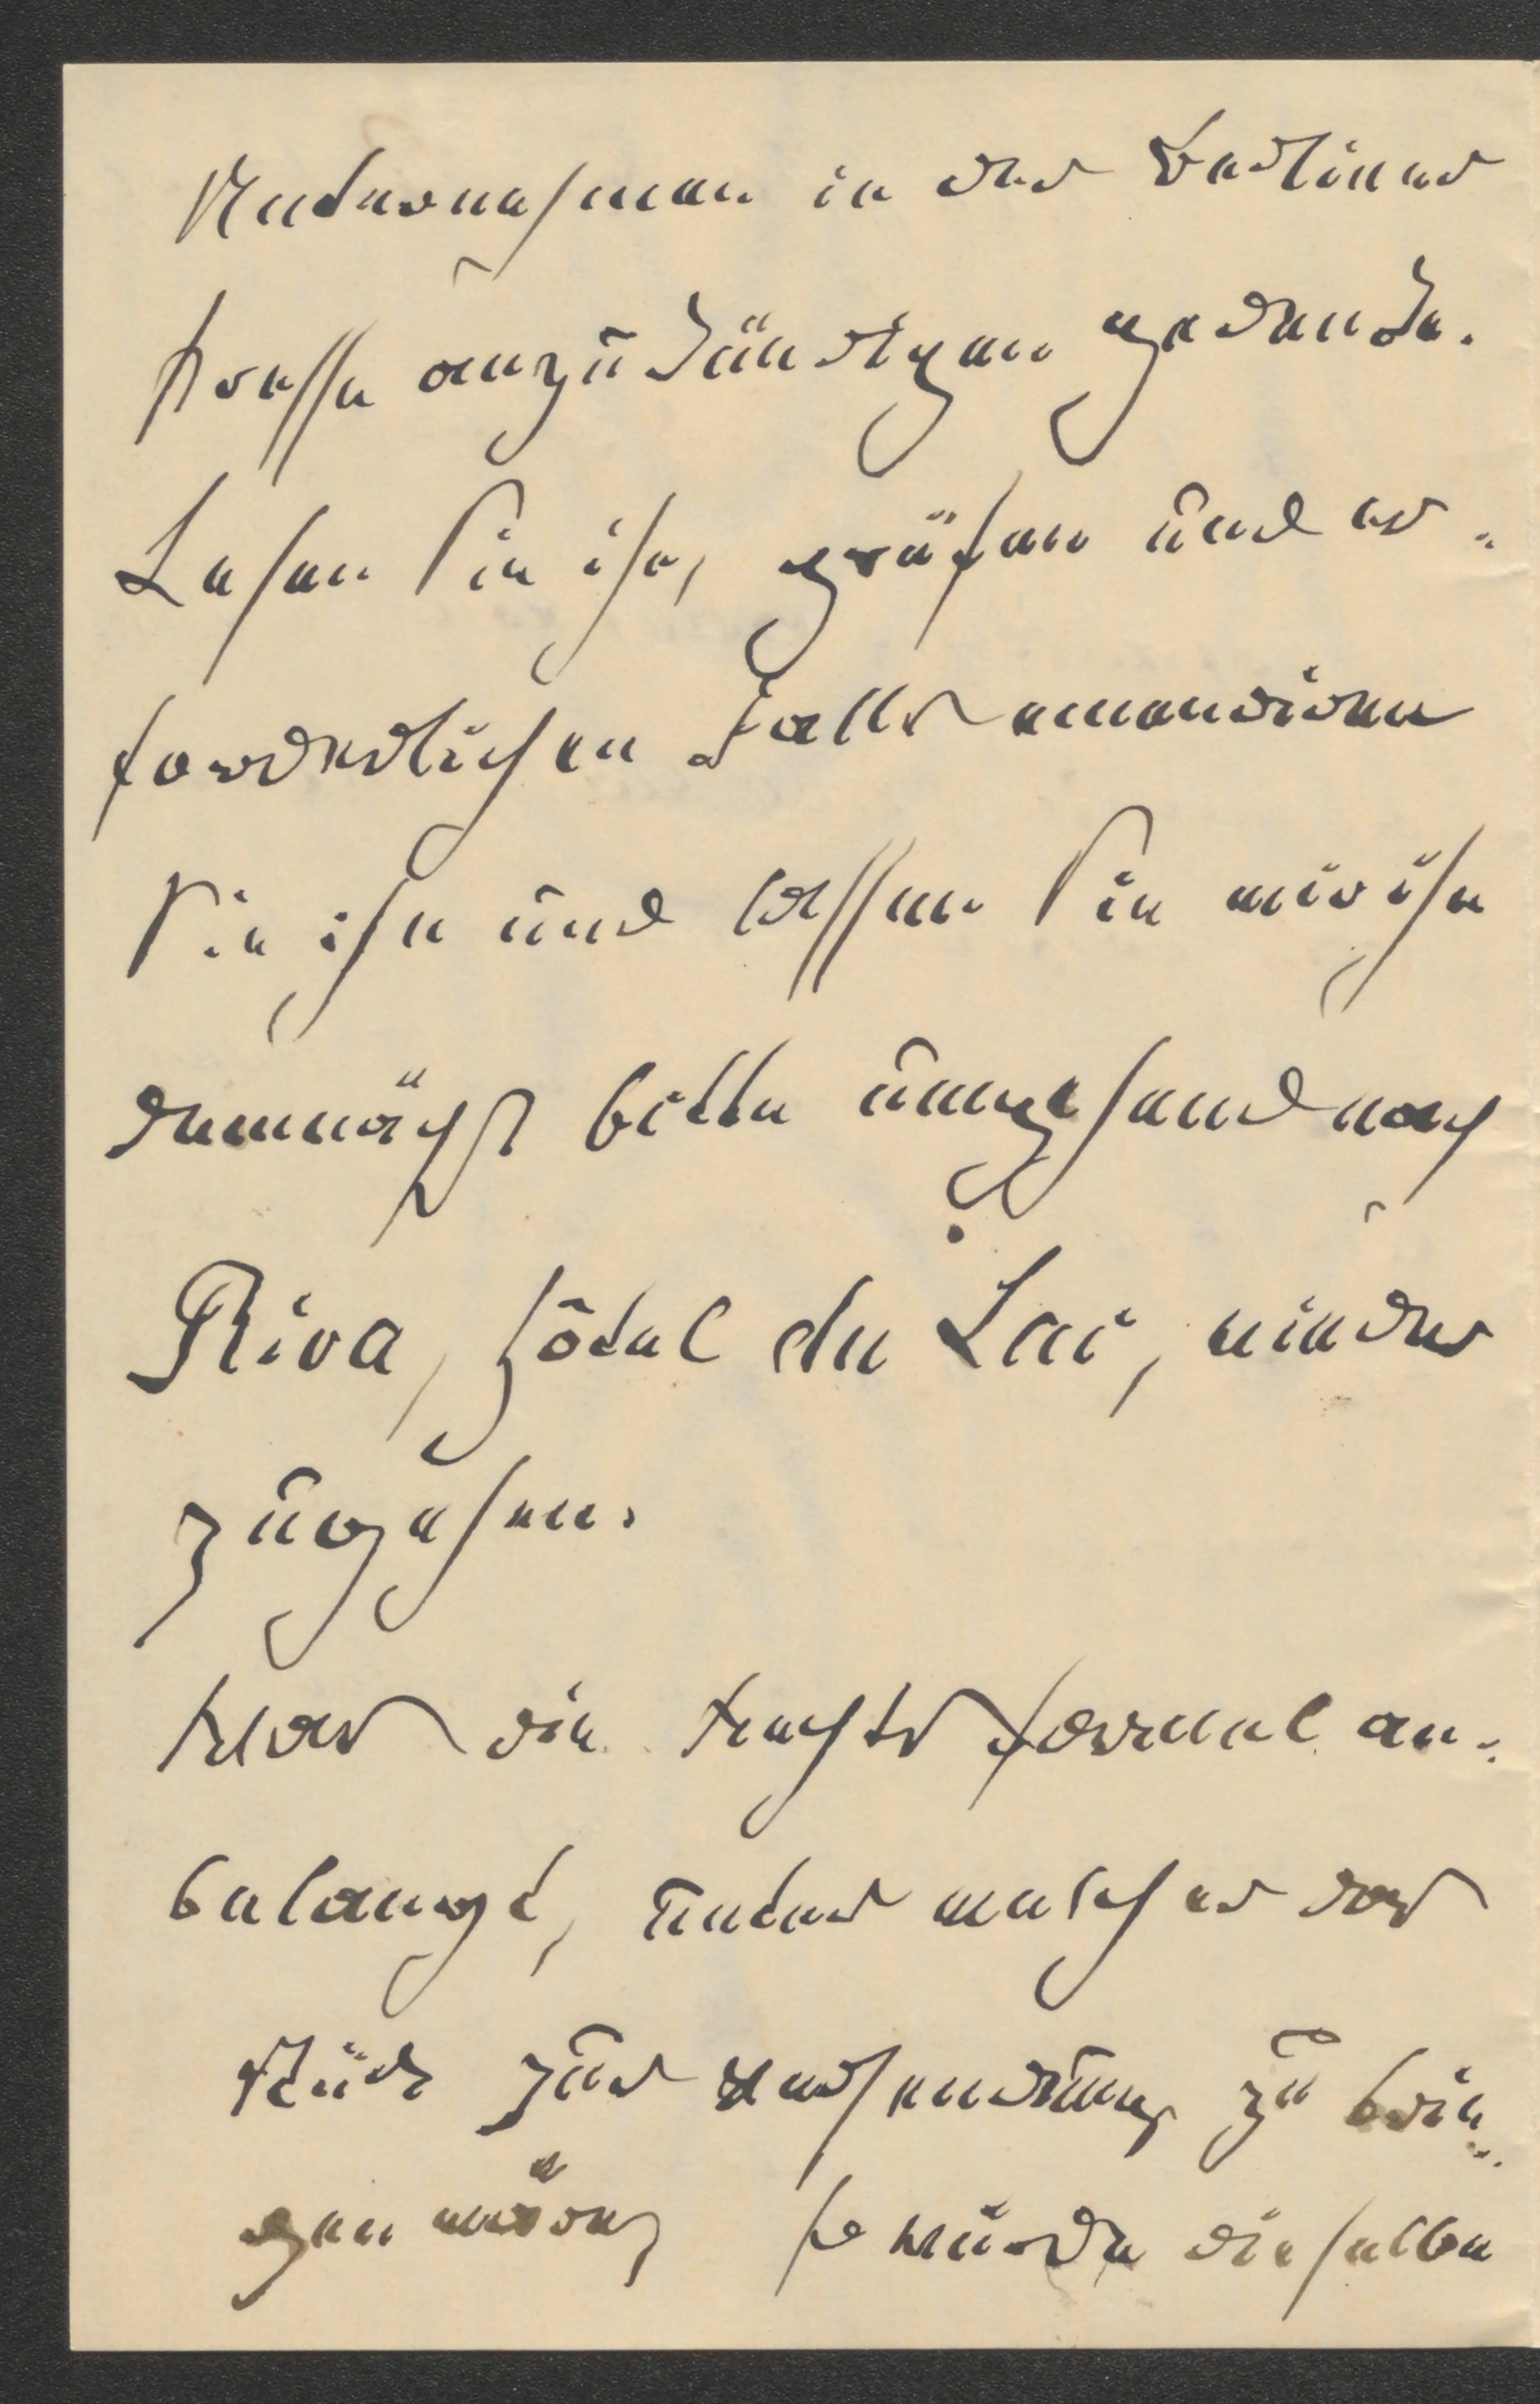 Unternehmen in der Berliner
Presse anzukündigen gedenke.
Lesen Sie ihn, prüfen und er-
forderlichen Falls amendiren
Sie ihn und lassen Sie mir ihn
demnächst bitte umgehend nach
Riva, Hôtel du Lac, wieder
zugehen.
Was die Rechtsformel an-
belangt, unter welcher das
Stück zur Versendung zu brin-
gen wäre, so würde dieselbe